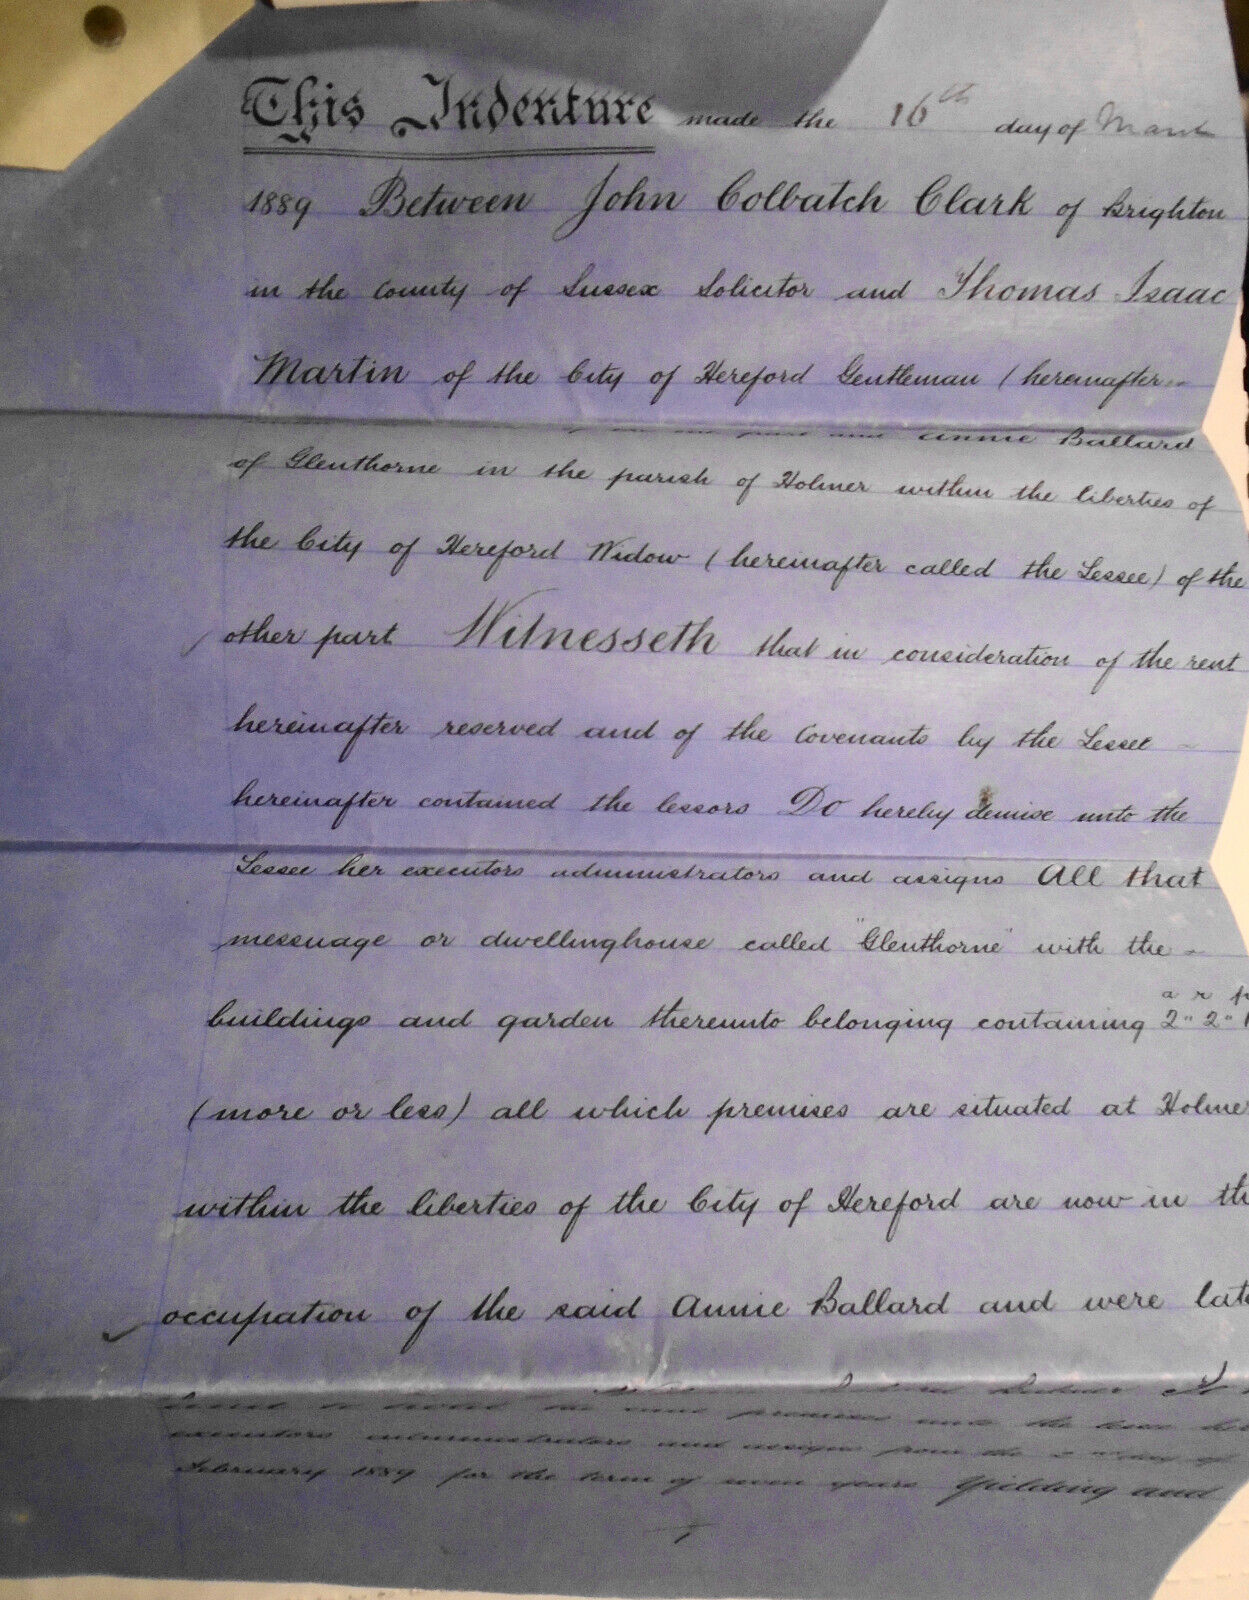 This Indenture made the 16th day of March
1889 Between John Colbatch Clark of Brighton
in the County of Sussex Solicitor and Thomas Isaac
Martin of the City of Hereford Gentleman (hereinafter
of the one part and Annie Ballard
of Glenthorne in the parish of Holmer within the liberties of
the City of Hereford Widow (hereinafter called the Lessee) of the
other part Witnesseth that in consideration of the rent
hereinafter reserved and of the Covenants by the Lessee
hereinafter contained the lessors Do hereby demise unto the
Lessee her executors administrators and assigns All that
messuage or dwellinghouse called "Glenthorne" with the
buildings and garden thereunto belonging containing 2a" 2r"
(more or less) all which premises are situated at Holmer
within the liberties of the City of Hereford are now in the
occupation of the said Annie Ballard and were late
premises unto the
executors administrators and assigns from the day of
February 1889 for the term of seven years Yielding and